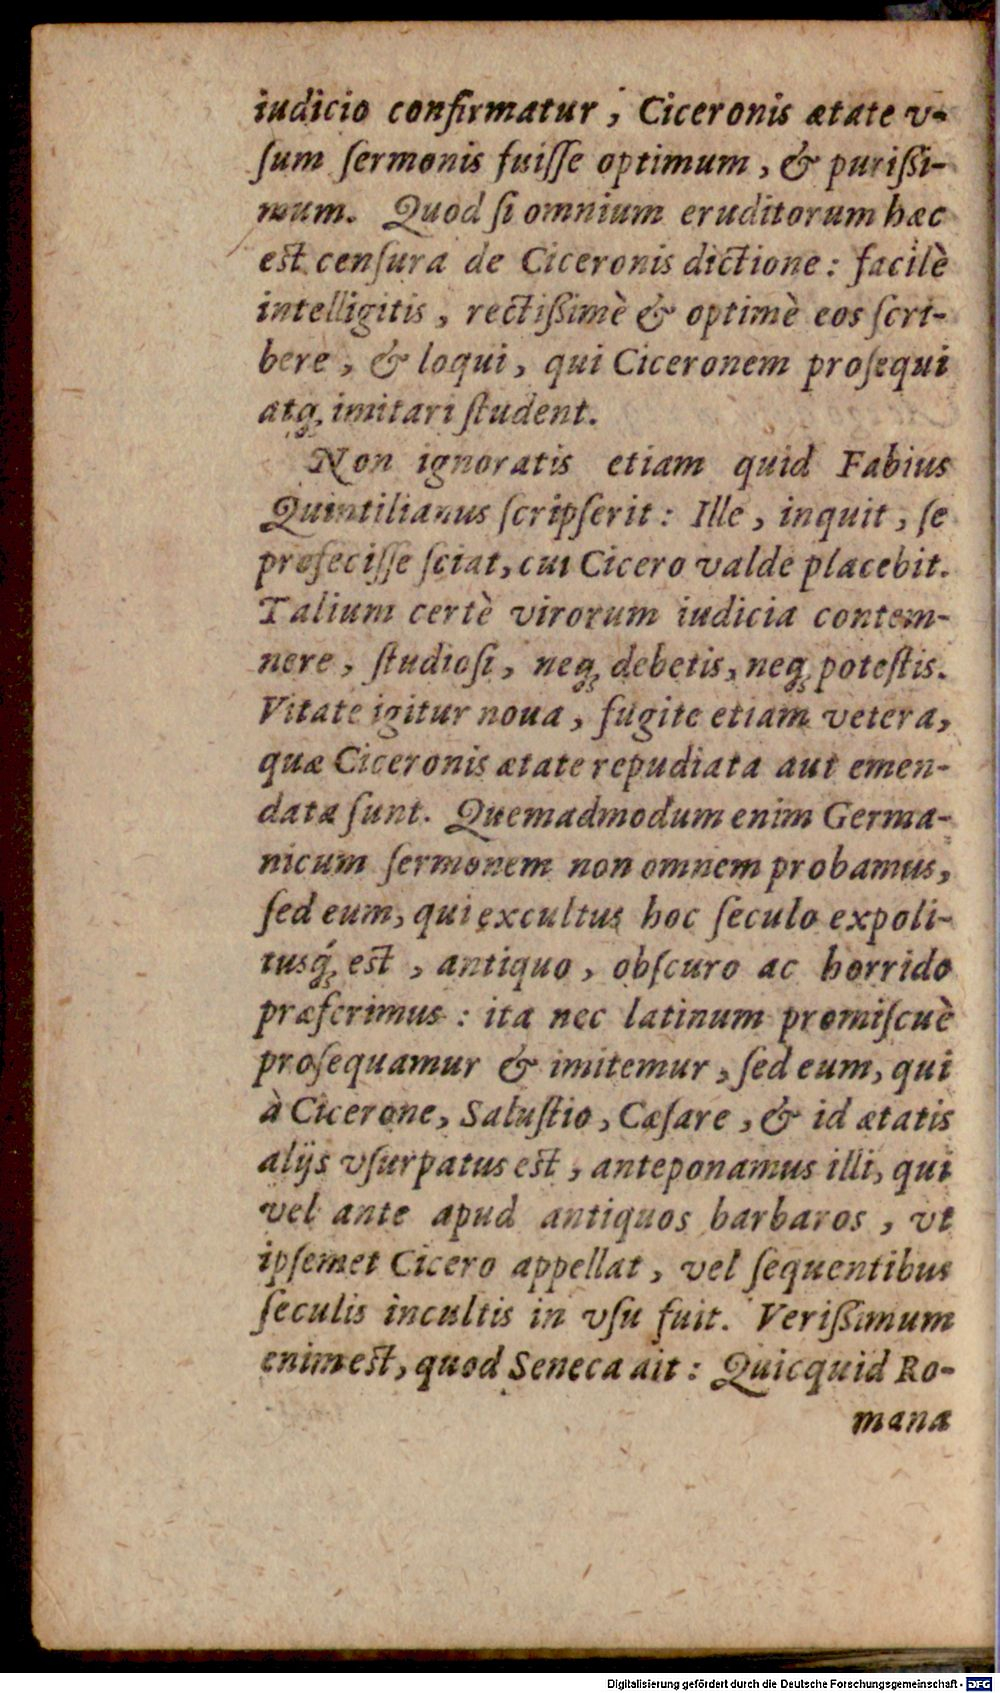 iudicio confirmatur, Ciceronis ætate v-
ſum ſermonis fuiſſe optimum, & purißi-
mum. Quod ſi omnium eruditorum hæc
est cenſura de Ciceronis dictione: facilè
intelligitis, rectißimè & optimè eos ſcri-
bere, & loqui, qui Ciceronem proſequi
atq; imitari ſtudent.
Non ignoratis etiam quid Fabius
Quintilianus ſcripſerit: Ille, inquit, ſe
profeciſſe ſciat, cui Cicero valde placebit.
Talium certè virorum iudicia contem-
nere, ſtudioſi, neq; debetis, neq; poteſtis.
Vitate igitur noua, fugite etiam vetera,
quæ Ciceronis ætate repudiata aut emen-
data ſunt. Quemadmodum enim Germa-
nicum ſermonem non omnem probamus,
ſed eum, qui excultus hoc ſeculo expoli-
tusq́; est, antiquo, obſcuro ac horrido
præferimus: ita nec latinum promiſcuè
proſequamur & imitemur, ſed eum, qui
à Cicerone, Saluſtio, Cæſare, & id ætatis
alijs vſurpatus est, anteponamus illi, qui
vel ante apud antiquos barbaros, vt
ipſemet Cicero appellat, vel ſequentibus
ſeculis incultis in vſu fuit. Verißimum
enim est, quod Seneca ait: Quicquid Ro-
manæ
Digitalisierung gefördert durch die Deutsche Forschungsgemeinschaft - DFG